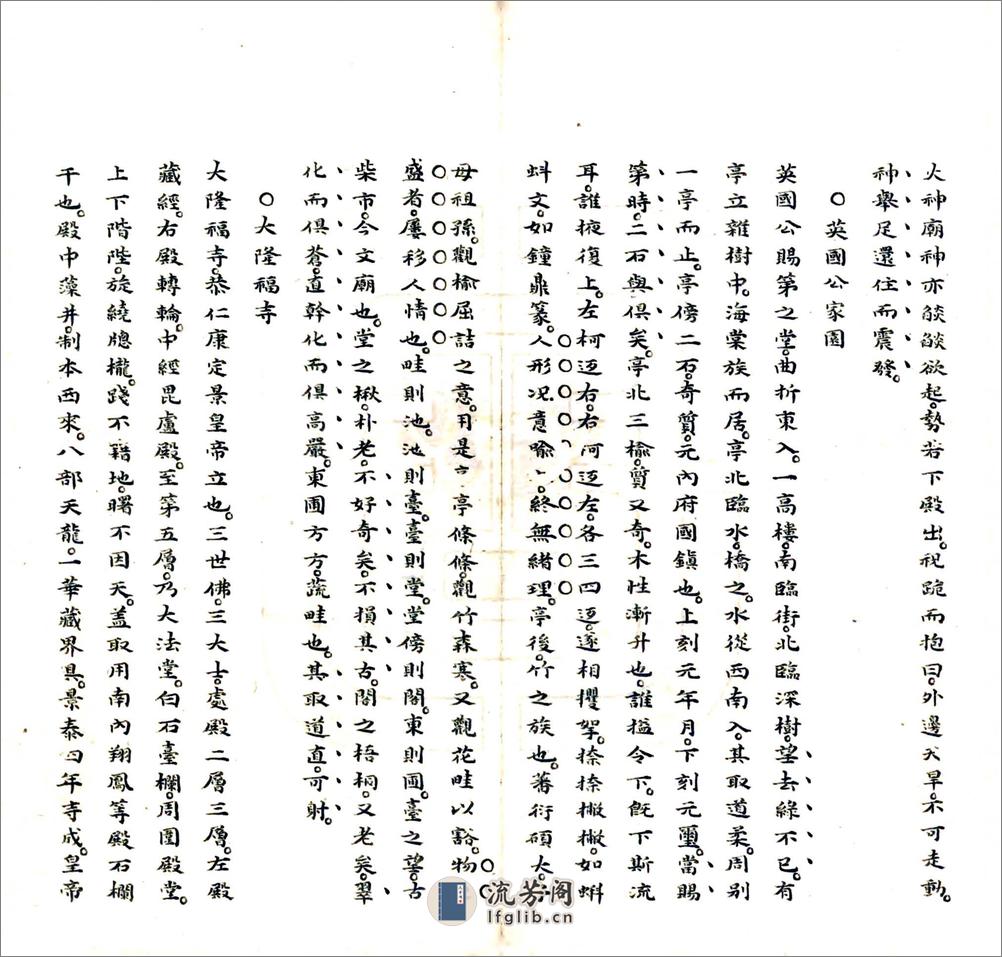 火神廟神亦燄燄欲起。勢若下殿出。祝跪而抱曰。外邊天旱。不可走動。
神舉足還住而震發。
○英國公家園
英國公賜第之堂。曲折東入。一高樓。南臨街。北臨深樹。望去綠不已。有
亭立雜樹中。海棠族而居。亭北臨水。橋之。水從西南入。其取道柔。周别
一亭而止。亭傍二石。奇質。元內府國鎮也。上刻元年月。下刻元璽。當賜
第時。二石與俱矣。亭北三榆。質又奇。木性漸升也。誰搤令下。旣下斯流
耳。誰掖復上。左柯迈右。右柯迈左。各三四迈。遂相攫拏。捺捺撇撇。如蝌
蚪文。如鐘鼎篆。人形况意喻之。終無緒理。亭後。竹之族也。蕃衍碩大。子
母祖孫。觀榆屈詰之意。用是亭亭條條。觀竹森寒。又觀花畦以豁。物
盛者。屢移人情也。畦則池。池則臺。臺則堂。堂傍則閣。東則圃。臺之望。古
柴市。今文廟也。堂之楸。朴老。不好奇矣。不損其古。閣之梧桐。又老矣。翠
化而俱蒼。直幹化而俱高嚴。東圃方方。蔬畦也。其取道直。可射。
○大隆福寺
大隆福寺。恭仁康定景皇帝立也。三世佛。三大士。處殿二層三層。左殿
藏經。右殿轉輪。中經毘盧殿。至第五層。乃大法堂。白石臺欄。周圍殿堂。
上下階陛。旋繞牕櫳。踐不籍地。曙不因天。蓋取用南內翔鳳等殿石欄
干也。殿中藻井。制本西來。八部天龍。一華藏界具。景泰四年寺成。皇帝
流芳阁
lfglib.cn